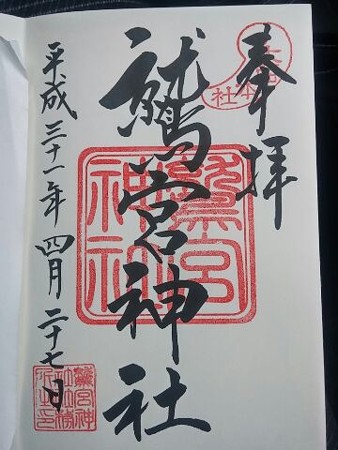 奉拝
鷲宮神社
平成三十一年四月二十七日
鷲宮
神社